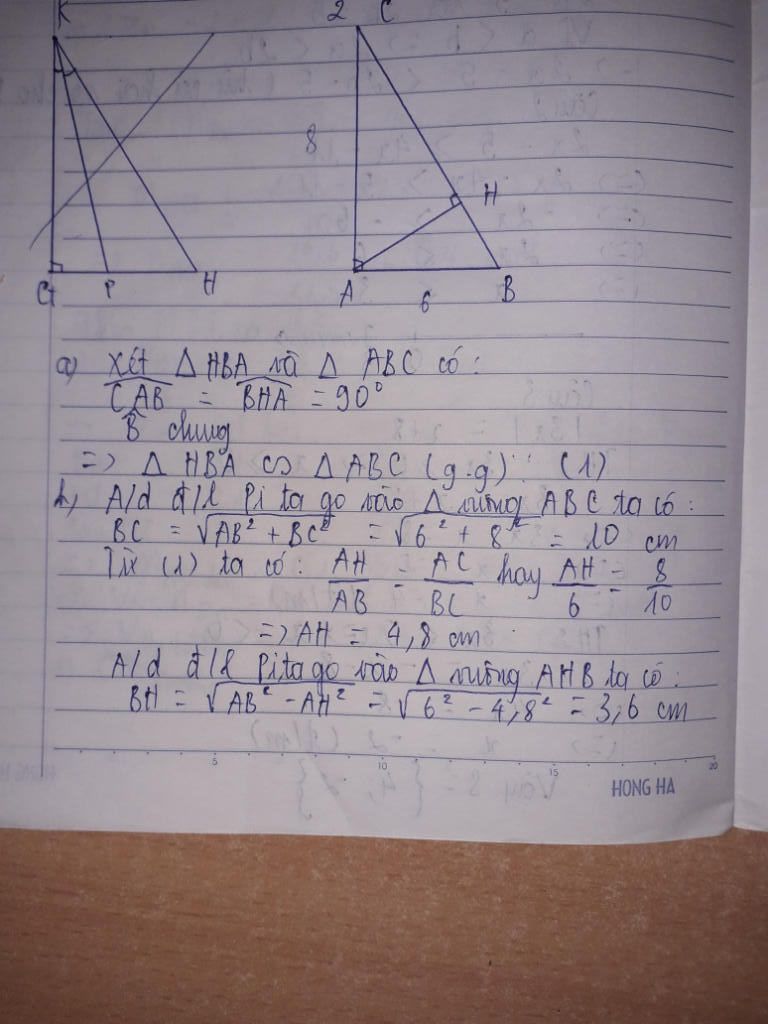 K
2 C
8
H
G P H
A 6 B
a) Xét Δ HBA và Δ ABC có:
CAB = BHA = 90°
B chung
=> Δ HBA ∽ Δ ABC (g.g) (1)
b, A/d đ/l Pitago vào Δ vuông ABC ta có:
BC = √AB² + BC² = √6² + 8² = 10 cm
Từ (1) ta có: AH/AB = AC/BC hay AH/6 = 8/10
=> AH = 4,8 cm
A/d đ/l Pitago vào Δ vuông AHB ta có:
BH = √AB² - AH² = √6² - 4,8² = 3,6 cm
5 10 15 20
HONG HA